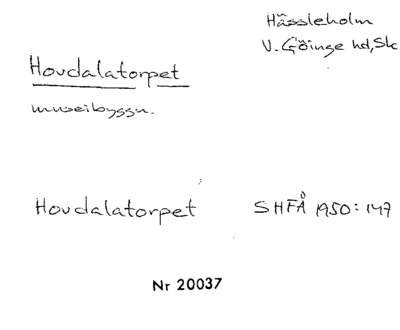 Hässleholm
V. Göinge hd, Sk
Hovdalatorpet
museibyggn.
Hovdalatorpet SHFÅ 1950:147
Nr 20037